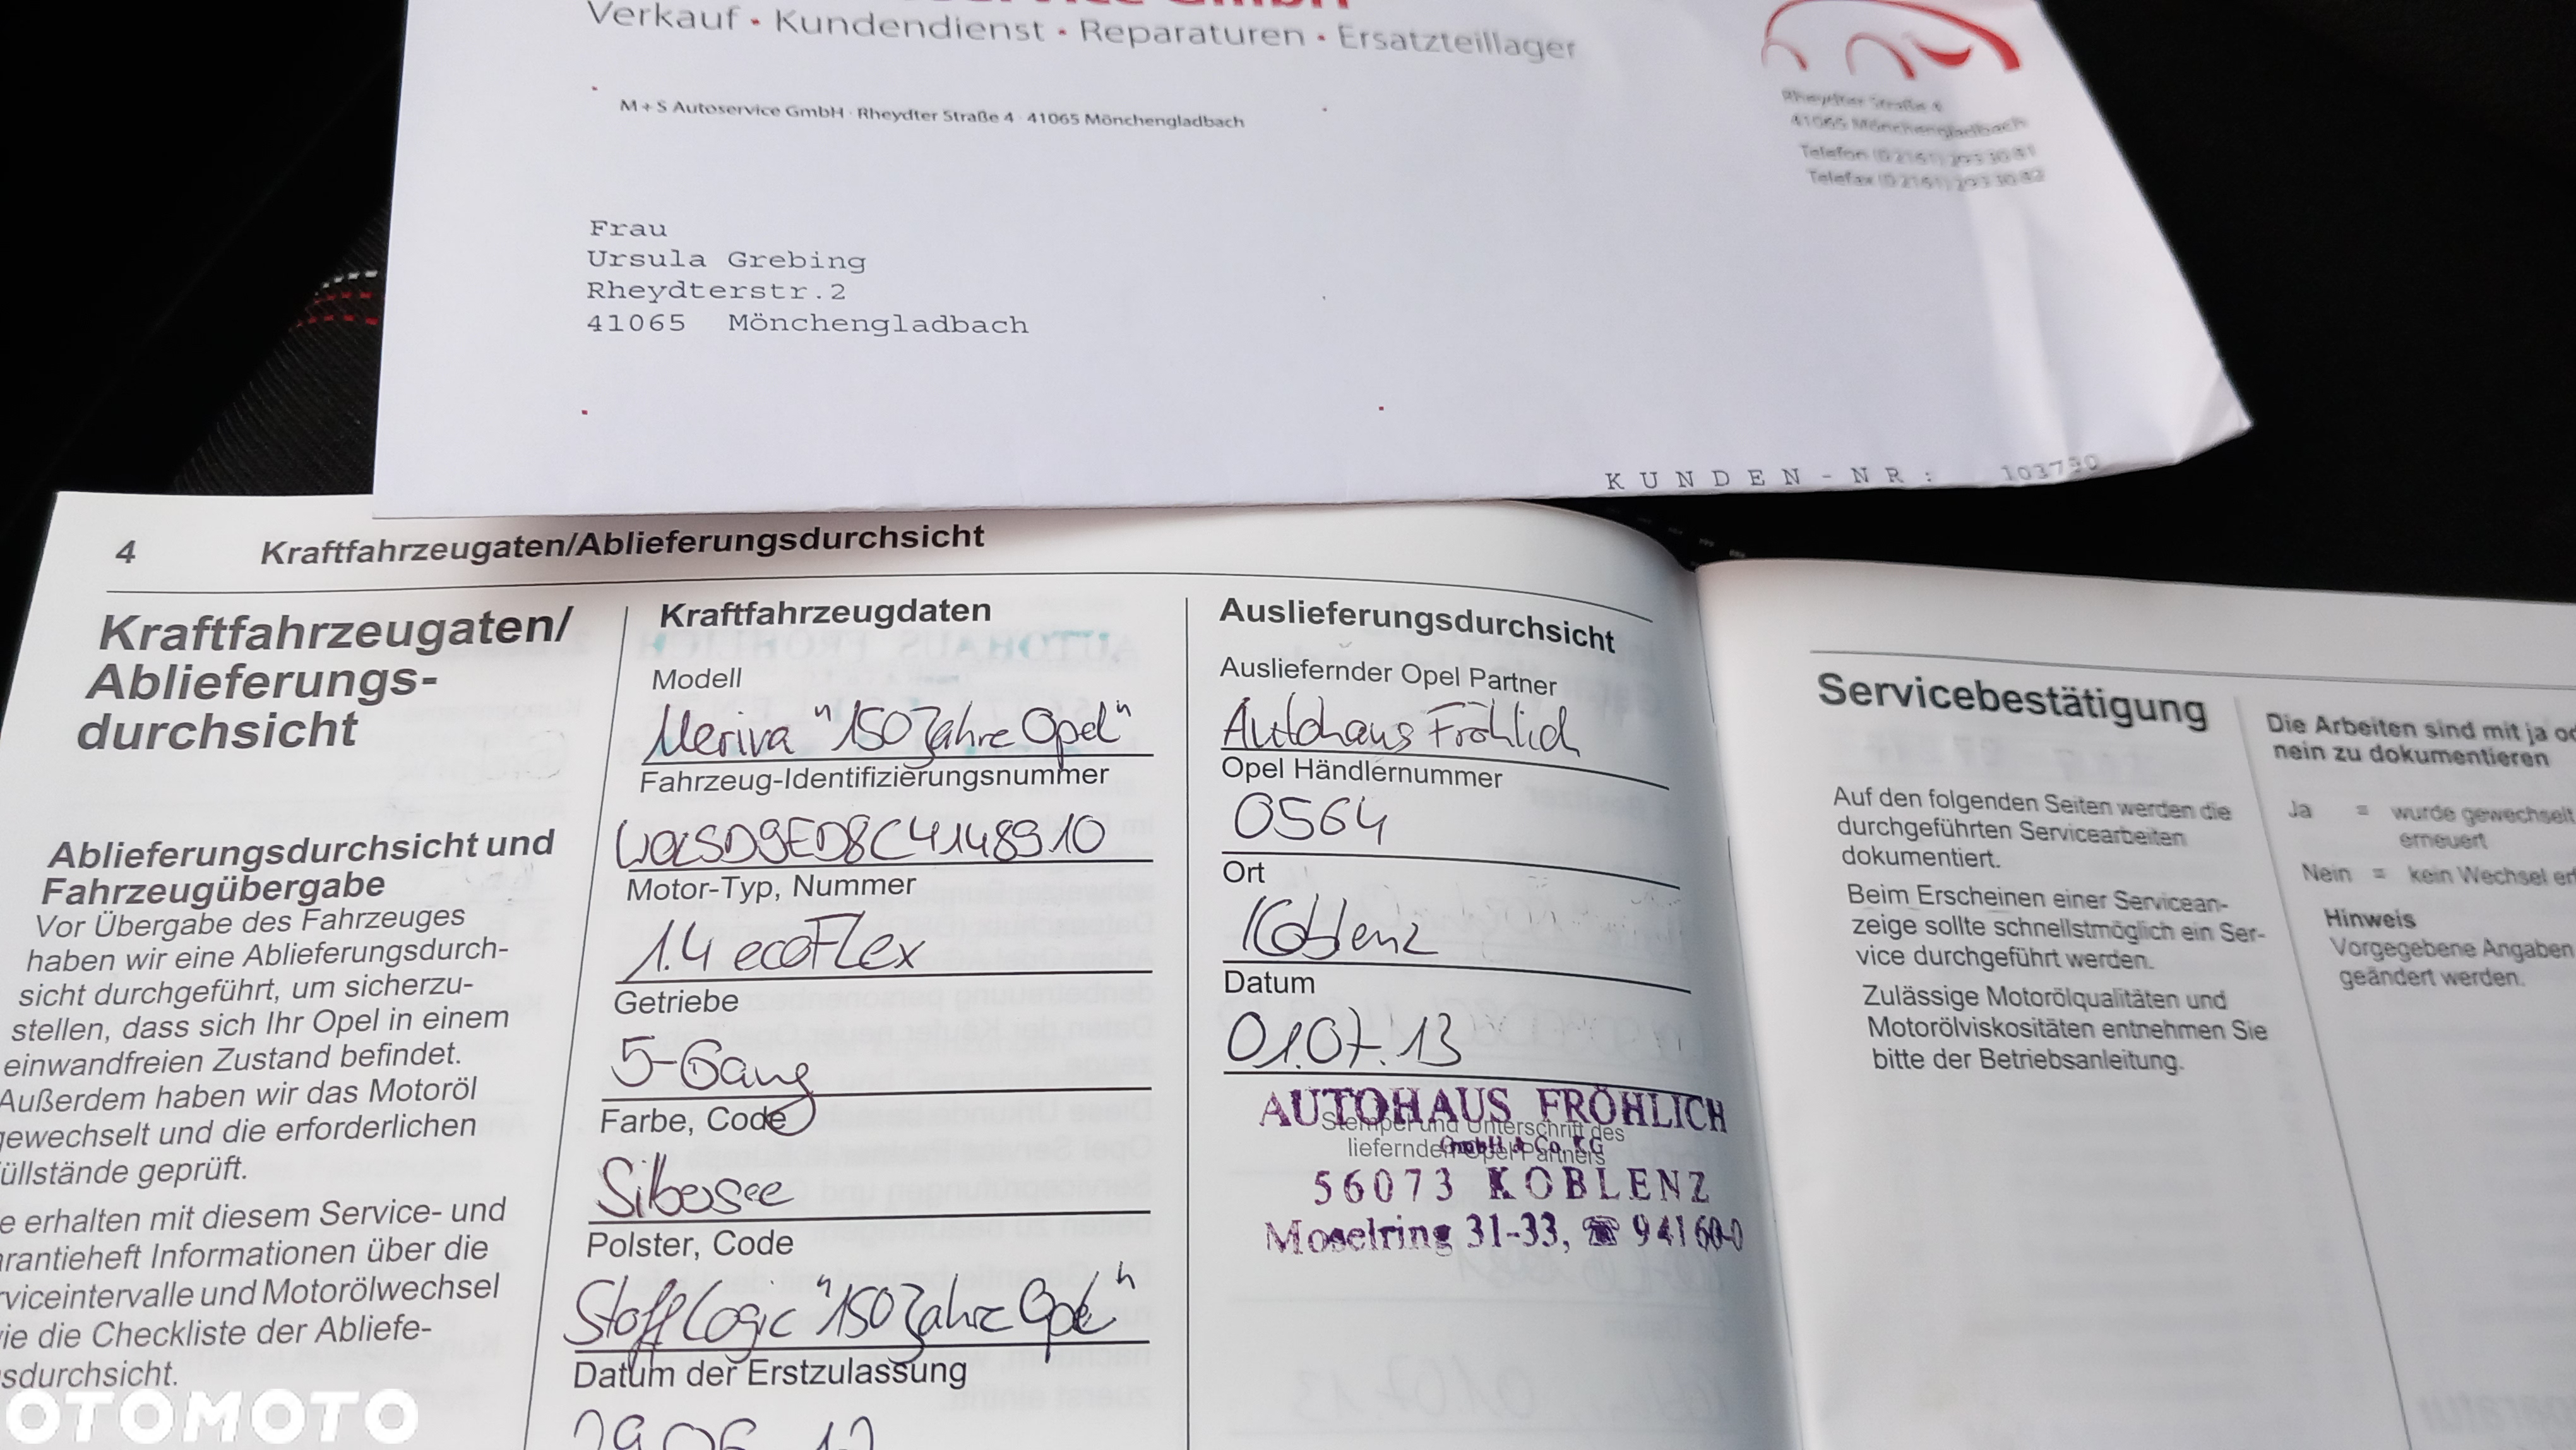 Verkauf • Kundendienst • Reparaturen • Ersatzteillager
M + S Autoservice GmbH · Rheydter Straße 4 · 41065 Mönchengladbach
Rheydter Straße 4
41065 Mönchengladbach
Telefon (0 21 61) 293 30 81
Telefax (0 21 61) 293 30 82
Frau
Ursula Grebing
Rheydterstr.2
41065 Mönchengladbach
KUNDEN-NR: 103790
4 Kraftfahrzeugaten/Ablieferungsdurchsicht
Kraftfahrzeugaten/
Ablieferungs-
durchsicht
Ablieferungsdurchsicht und
Fahrzeugübergabe
Vor Übergabe des Fahrzeuges
haben wir eine Ablieferungsdurch-
sicht durchgeführt, um sicherzu-
stellen, dass sich Ihr Opel in einem
einwandfreien Zustand befindet.
Außerdem haben wir das Motoröl
gewechselt und die erforderlichen
üllstände geprüft.
e erhalten mit diesem Service- und
arantieheft Informationen über die
rviceintervalle und Motorölwechsel
ie die Checkliste der Abliefe-
sdurchsicht.
Kraftfahrzeugdaten
Modell
Meriva "150 Jahre Opel"
Fahrzeug-Identifizierungsnummer
W0LSD9ED8C4148910
Motor-Typ, Nummer
1.4 ecoFlex
Getriebe
5-Gang
Farbe, Code
Silbersee
Polster, Code
Stoff Logic "150 Jahre Opel"
Datum der Erstzulassung
Auslieferungsdurchsicht
Ausliefernder Opel Partner
Autohaus Fröhlich
Opel Händlernummer
0564
Ort
Koblenz
Datum
01.07.13
AUTOHAUS FRÖHLICH
Stempel und Unterschrift des
liefernden Opel Partners
GmbH & Co. KG
56073 KOBLENZ
Moselring 31-33, ☎ 94160-0
Servicebestätigung
Auf den folgenden Seiten werden die
durchgeführten Servicearbeiten
dokumentiert.
Beim Erscheinen einer Servicean-
zeige sollte schnellstmöglich ein Ser-
vice durchgeführt werden.
Zulässige Motorölqualitäten und
Motorölviskositäten entnehmen Sie
bitte der Betriebsanleitung.
Die Arbeiten sind mit ja od
nein zu dokumentieren
Ja = wurde gewechselt
erneuert
Nein = kein Wechsel erf
Hinweis
Vorgegebene Angaben
geändert werden.
OTOMOTO